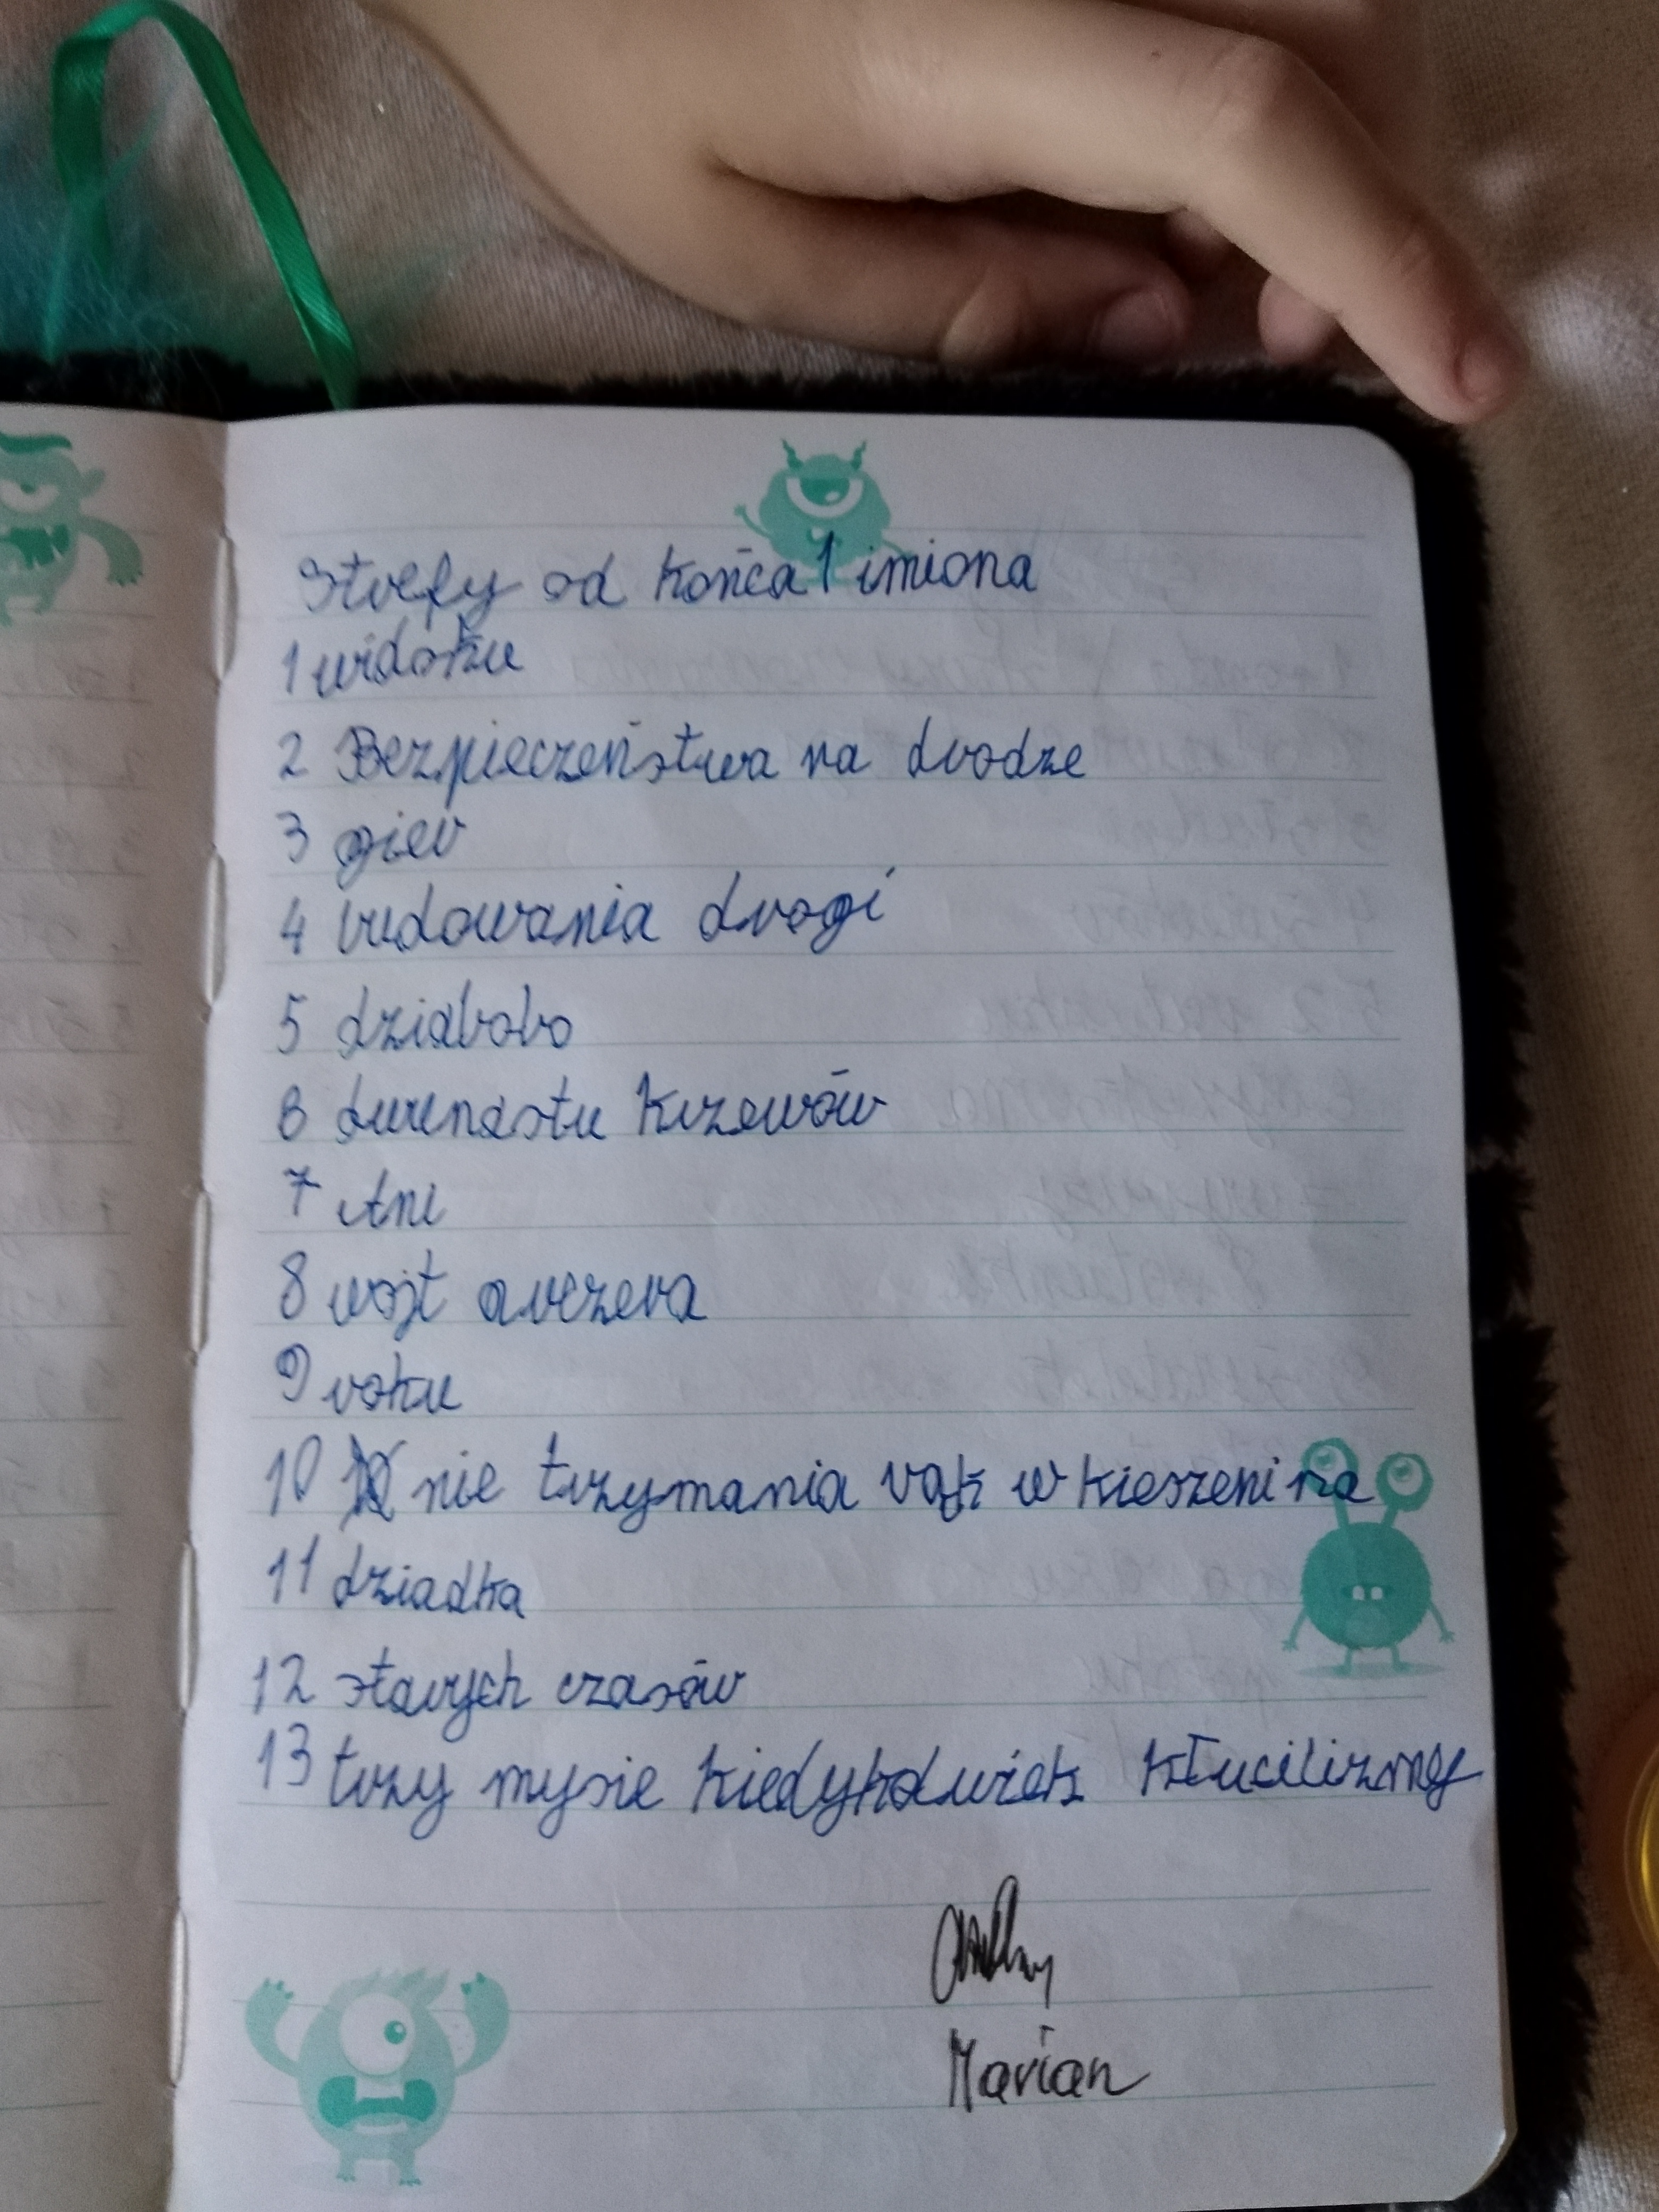 Strefy od końca 1 imiona
1 widoku
2 Bezpieczeństwa na drodze
3 gier
4 budowania drogi
5 dziabobo
6 dwunastu krzewów
7 Ani
8 wojt
9 roku
10 nie trzymania rąk w kieszeni na
11 dziadka
12 starych czasów
13 trzy mysie kiedykolwiek
Marian